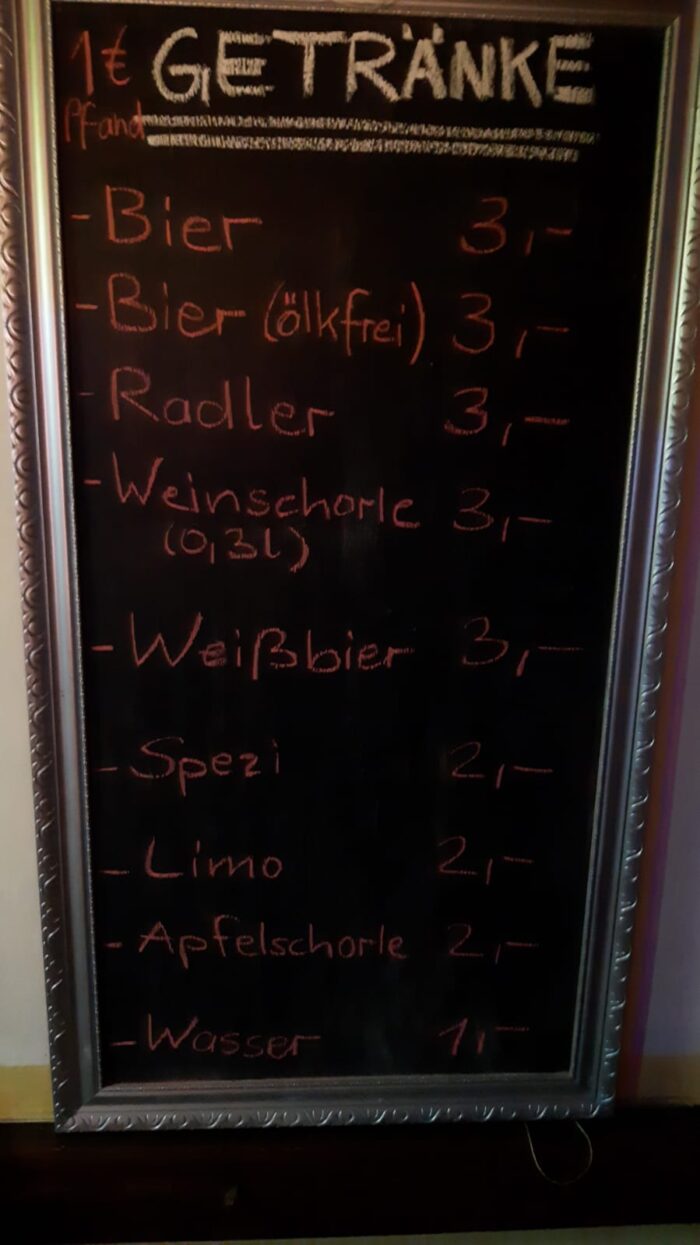 1€ GETRÄNKE
Pfand
- Bier 3,-
- Bier (ölkfrei) 3,-
- Radler 3,-
- Weinschorle 3,-
(0,3l)
- Weißbier 3,-
- Spezi 2,-
- Limo 2,-
- Apfelschorle 2,-
- Wasser 1,-